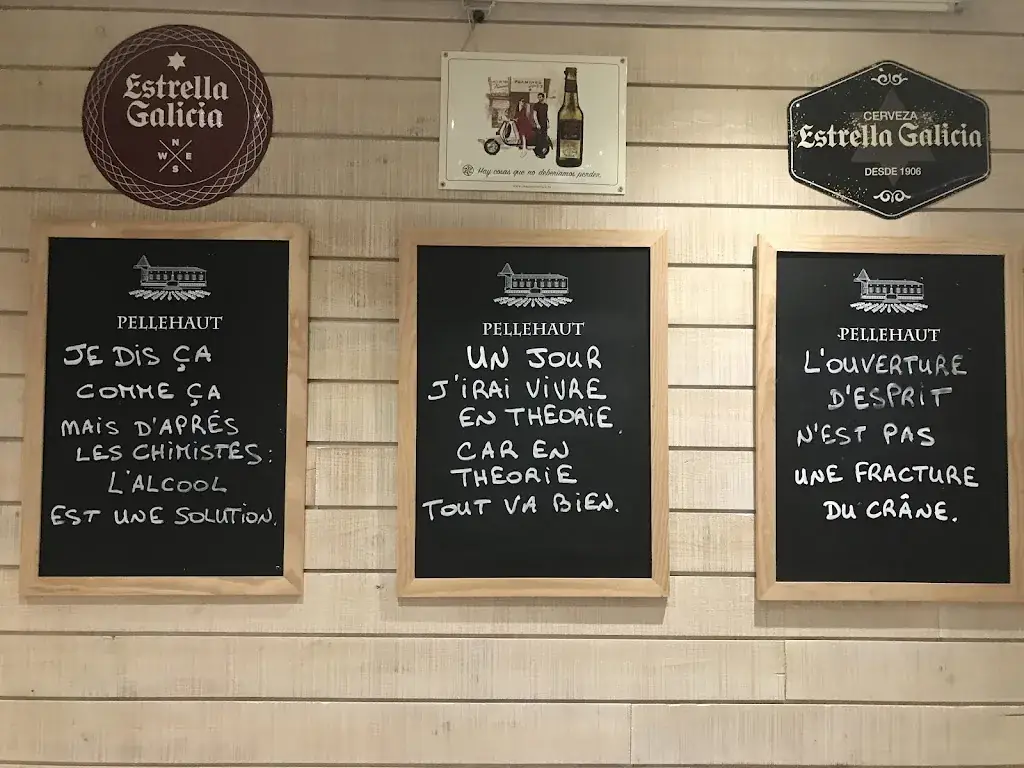 Estrella
Galicia
N
W E
S
Hay cosas que no deberíamos perder.
CERVEZA
Estrella Galicia
DESDE 1906
PELLEHAUT
JE DIS ÇA
COMME ÇA
MAIS D'APRÉS
LES CHIMISTES:
L'ALCOOL
EST UNE SOLUTION.
PELLEHAUT
UN JOUR
J'IRAI VIVRE
EN THEORIE.
CAR EN
THEORIE
TOUT VA BIEN.
PELLEHAUT
L'OUVERTURE
D'ESPRIT
N'EST PAS
UNE FRACTURE
DU CRÂNE.